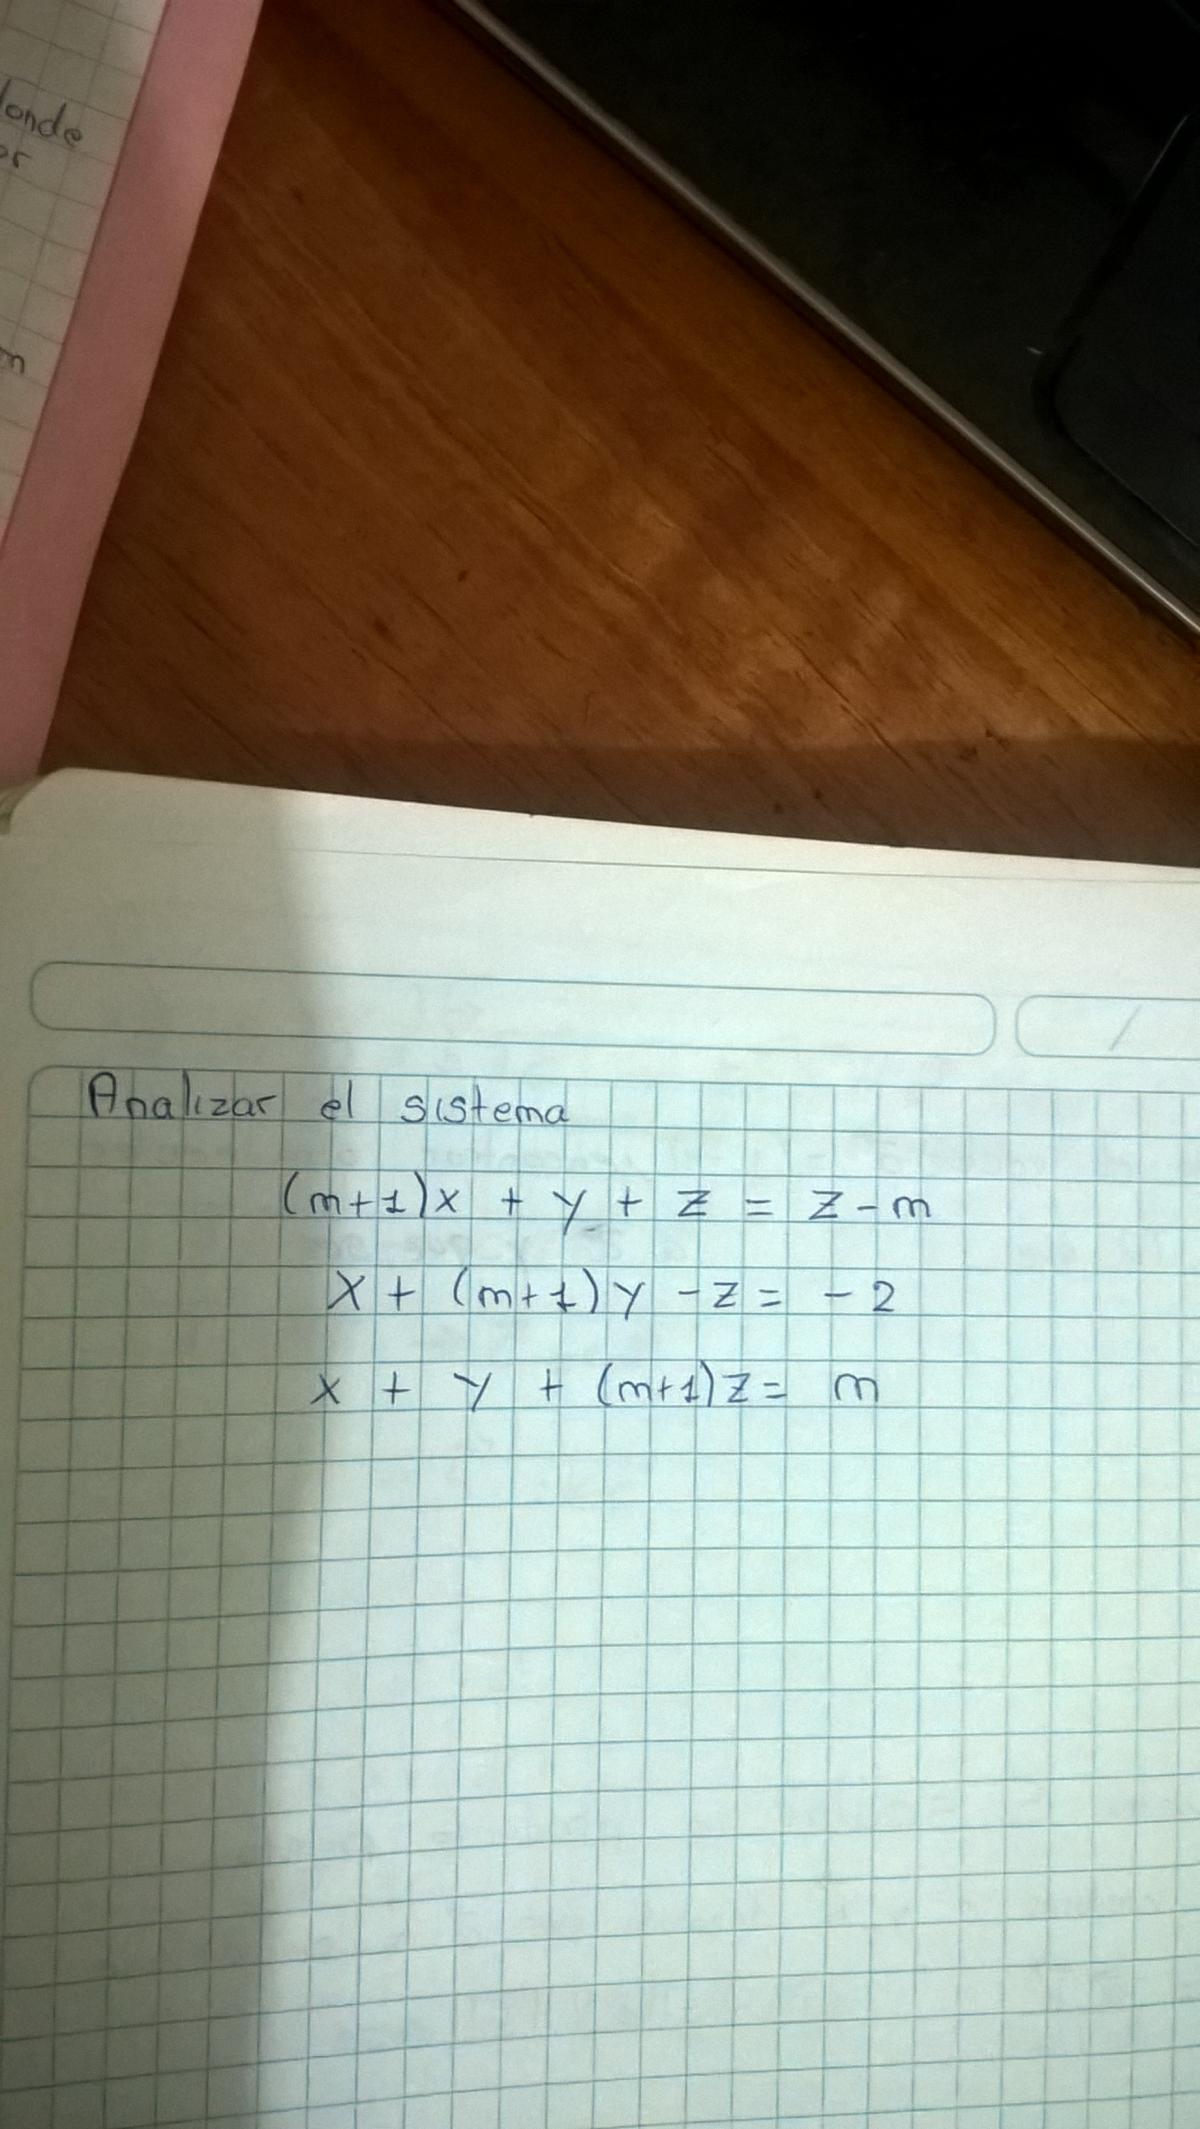 londe
or
m
Analizar el sistema
(m+1)x + y + z = z - m
x + (m+1)y - z = - 2
x + y + (m+1)z = m